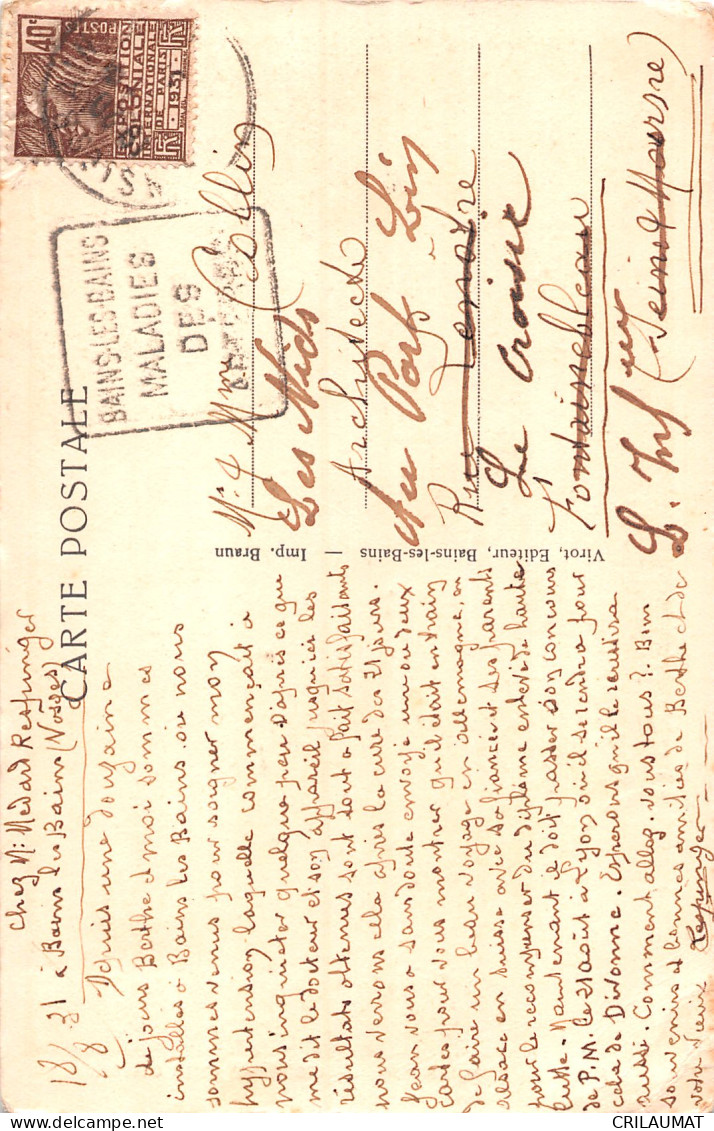 CARTE POSTALE
Chez M: Médard Respinger
18/8 31 à Bains les Bains (Vosges)
Depuis une douzaine
de jours Berthe et moi sommes
installés à Bains les Bains où nous
sommes venus pour soigner mon
hypertension laquelle commençait à
nous inquiéter quelque peu. D'après ce que
me dit le docteur et son appareil jusqu'ici les
résultats obtenus sont tout à fait satisfaisants
nous verrons cela après la cure des 21 jours.
Jean vous a sans doute envoyé un ou deux
cartes pour vous montrer qu'il était en train
de faire un beau voyage en allemagne, en
alsace en suisse avec sa fiancée et ses parents
pour le récompenser du diplôme enlevé de haute
lutte. Maintenant il doit passer son concours
de P.M. le 21 août à Lyon où il se rendra pour
cela de Divonne. Espérons qu'il le réussira
aussi. Comment allez-vous tous? Bien
souvenirs et bonnes amitiés de Berthe et de
votre vieux Respinger
Virot, Editeur, Bains-les-Bains — Imp. Braun
POSTES
40c
EXPOSITION
COLONIALE
INTERNATIONALE
DE PARIS
1931
BAINS-LES-BAINS
MALADIES
DES
ARTÈRES
M. & Mme Collin
Les Nids
Architecte
Au Port
Rue Lenotre
Le Croisic
Fontainebleau
L. Infeure
(Seine & Marne)
CRILAUMAT